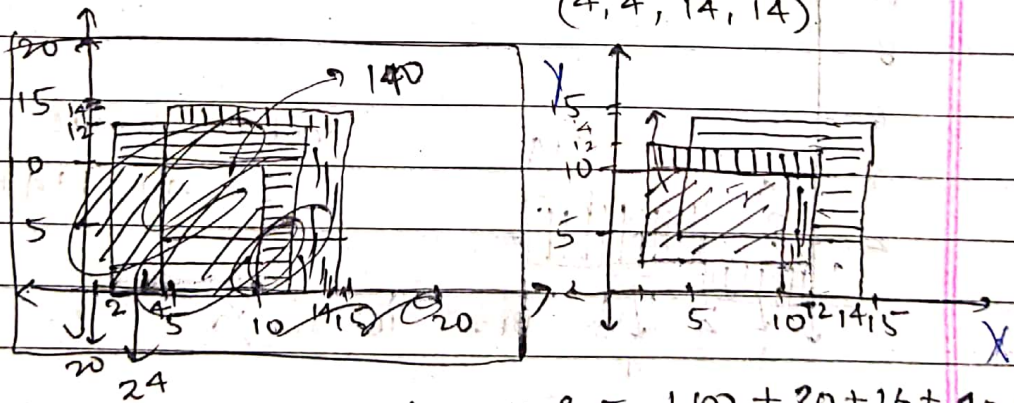 (4, 4, 14, 14)
20
140
15
14
12
0
5
2 4 5 10 14 15 20
20
24
Y
15
14
12
10
5
5 10 12 14 15
X
100 + 20 + 16 +